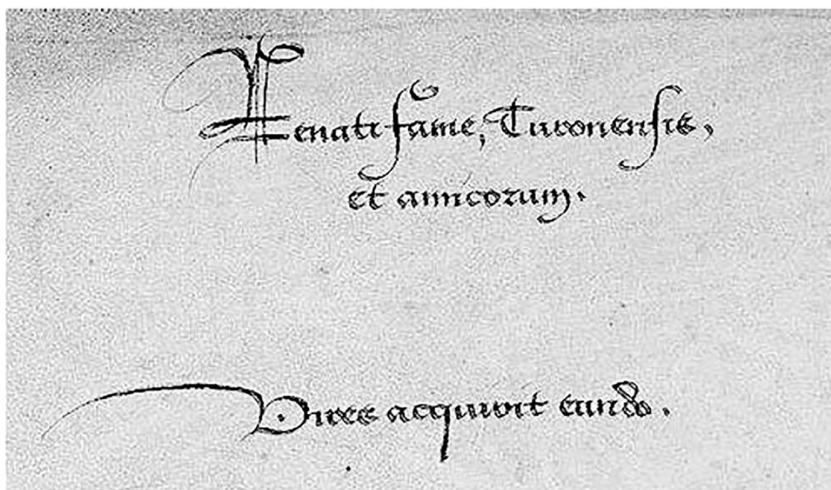 Renati fame, Turonensis,
et amicorum.
Vires acquirit eundo.